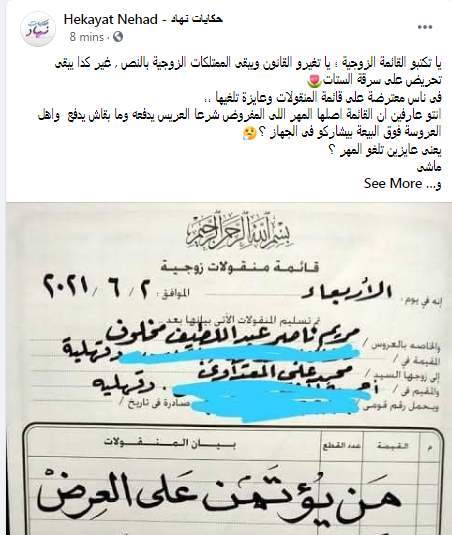 Hekayat Nehad - حكايات نهاد
8 mins ·
يا تكتبو القائمة الزوجية ؛ يا تغيرو القانون ويبقى الممتلكات الزوجية بالنص , غير كدا يبقى
تحريض على سرقة الستات🌷
فى ناس معترضة على قائمة المنقولات وعايزة تلغيها ،،
انتو عارفين ان القائمة اصلها المهر اللى المفروض شرعا العريس يدفعه وما بقاش يدفع واهل
العروسة فوق البيعة بيشاركو فى الجهاز ؟😢
يعنى عايزين تلغو المهر ؟
ماشى
و... See More
بسم الله الرحمن الرحيم
قائمة منقولات زوجية
إنه في يوم: الأربعاء الموافق: ٢ / ٦ / ٢٠٢١
تم تسليم المنقولات الآتي بيانها بعد
والخاصه بالعروس / مريم ناصر عبد اللطيف مخلوف
المقيمة في / دقهلية
إلى زوجها السيد / محمد علي
والمقيم في / دقهليه
ويحمل رقم قومى / صادرة في تاريخ /
م القيمة عدد القطع بيان المنقولات
من يؤتمن على العرض